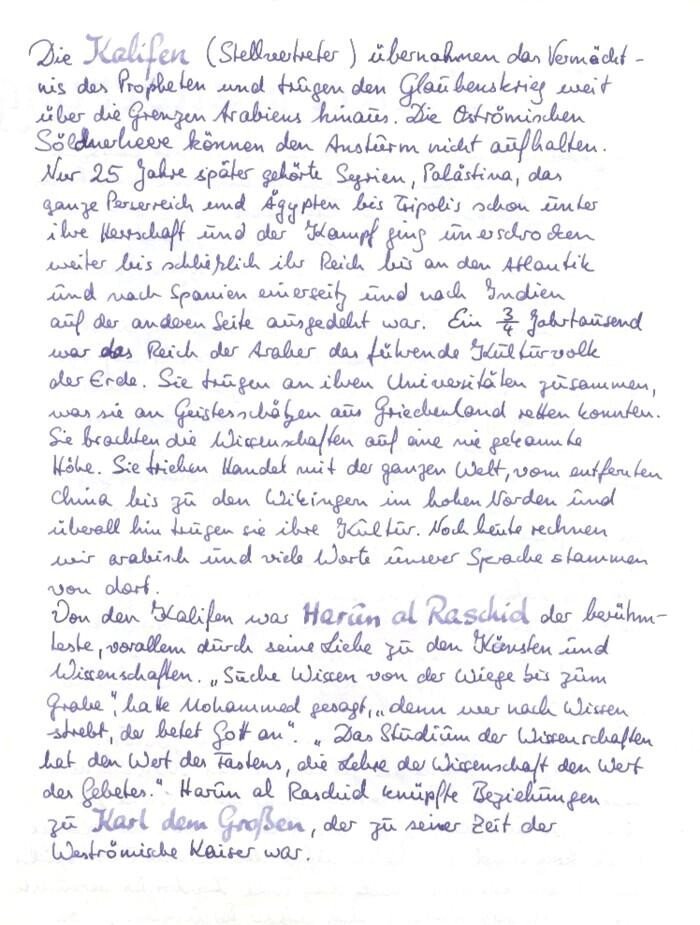 Die Kalifen (Stellvertreter) übernahmen das Vermächt-
nis des Propheten und trugen den Glaubenskrieg weit
über die Grenzen Arabiens hinaus. Die Oströmischen
Söldnerheere können den Ansturm nicht aufhalten.
Nur 25 Jahre später gehörte Syrien, Palästina, das
ganze Perserreich und Ägypten bis Tripolis schon unter
ihre Herrschaft und der Kampf ging unerschrocken
weiter bis schließlich ihr Reich bis an den Atlantik
und nach Spanien einerseitz und nach Indien
auf der anderen Seite ausgedeht war. Ein 3/4 Jahrtausend
war das Reich der Araber das führende Kulturvolk
der Erde. Sie trugen an ihren Universitäten zusammen,
was sie an Geistesschätzen aus Griechenland retten konnten.
Sie brachten die Wissenschaften auf eine nie gekannte
Höhe. Sie trieben Handel mit der ganzen Welt, vom entfernten
China bis zu den Wikingen im hohen Norden und
überall hin trugen sie ihre Kultur. Noch heute rechnen
wir arabisch und viele Worte unserer Sprache stammen
von dort.
Von den Kalifen war Harun al Raschid der berühm-
teste, vorallem durch seine Liebe zu den Künsten und
Wissenschaften. „Suche Wissen von der Wiege bis zum
Grabe", hatte Mohammed gesagt, „denn wer nach Wissen
strebt, der betet Gott an". „Das Studium der Wissenschaften
hat den Wert des Fastens, die Lehre der Wissenschaft den Wert
des Gebetes." Harun al Raschid knüpfte Beziehungen
zu Karl dem Großen, der zu seiner Zeit der
Weströmische Kaiser war.